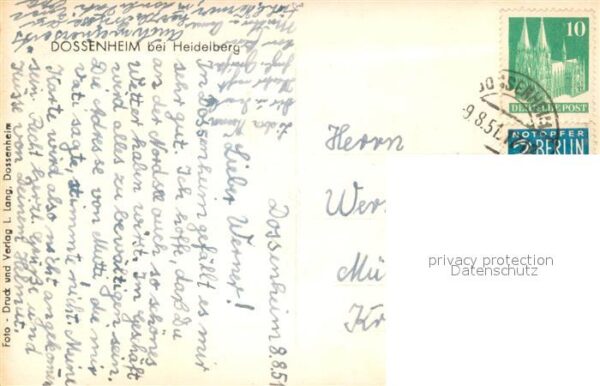 DOSSENHEIM bei Heidelberg
Foto - Druck und Verlag L. Lang, Dossenheim
Dossenheim 8.8.51
Lieber Werner!
In Dossenheim gefällt es mir
sehr gut. Ich hoffe, daß Du
an der Nordsee auch so schönes
Wetter haben wirst. Im Geschäft
wird alles zu bewältigen sein.
Die Adresse von Mutti, die mir
Vati sagte, stimmte nicht. Meine
Karte wird also nicht angekommen
sein. Recht herzl. Grüße und
Küsse von Deinem Helmut.
Herrn
Wer
Mü
Kr
10
DEUTSCHE POST
DOSSENHEIM
9.8.51
NOTOPFER
2 BERLIN
privacy protection
Datenschutz